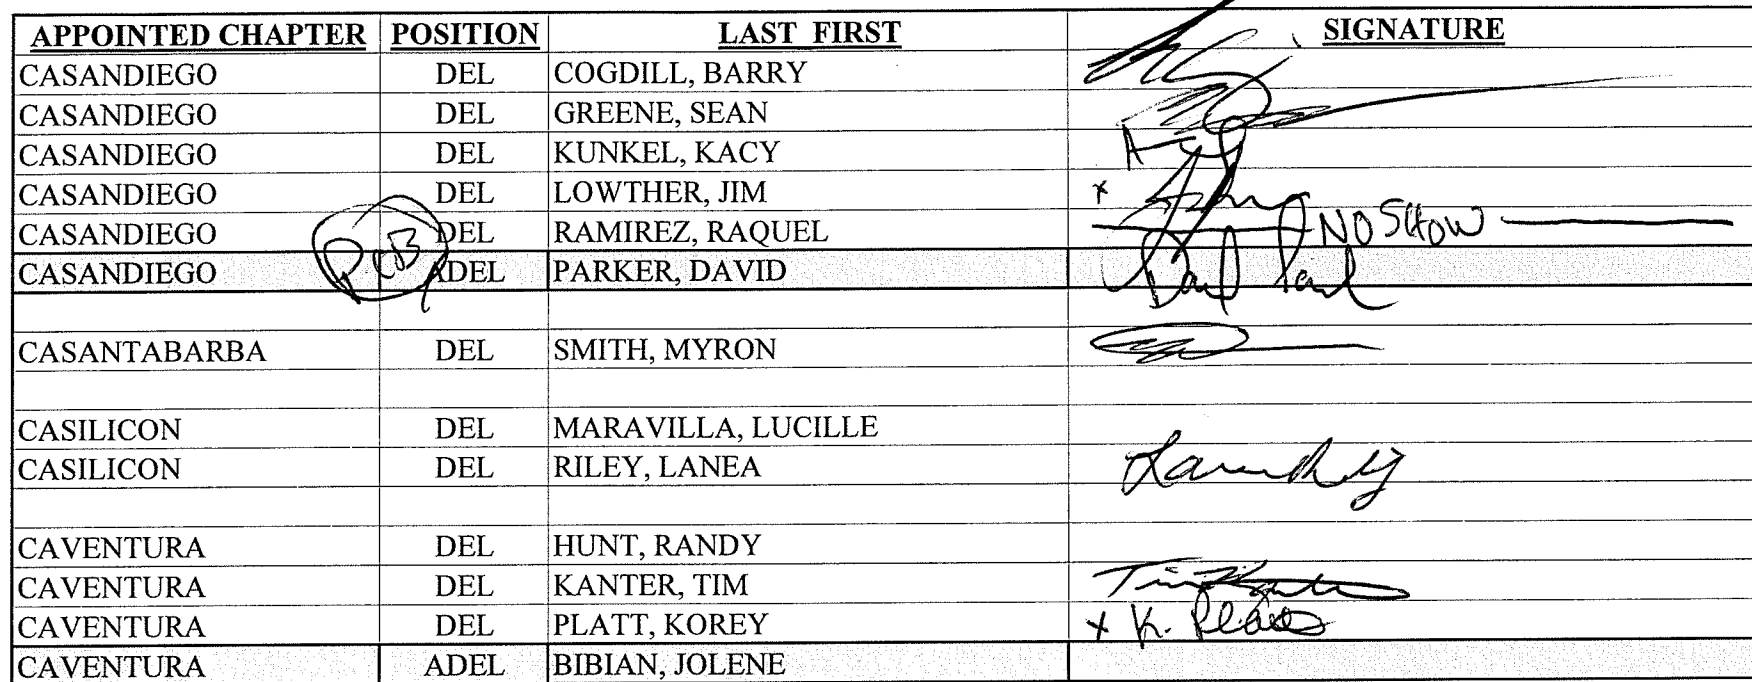 APPOINTED CHAPTER POSITION LAST FIRST SIGNATURE
CASANDIEGO DEL COGDILL, BARRY
CASANDIEGO DEL GREENE, SEAN
CASANDIEGO DEL KUNKEL, KACY
CASANDIEGO DEL LOWTHER, JIM x
CASANDIEGO DEL RAMIREZ, RAQUEL NO SHOW
CASANDIEGO ADEL PARKER, DAVID
CASANTABARBA DEL SMITH, MYRON
CASILICON DEL MARAVILLA, LUCILLE
CASILICON DEL RILEY, LANEA
CAVENTURA DEL HUNT, RANDY
CAVENTURA DEL KANTER, TIM
CAVENTURA DEL PLATT, KOREY x K. Platt
CAVENTURA ADEL BIBIAN, JOLENE